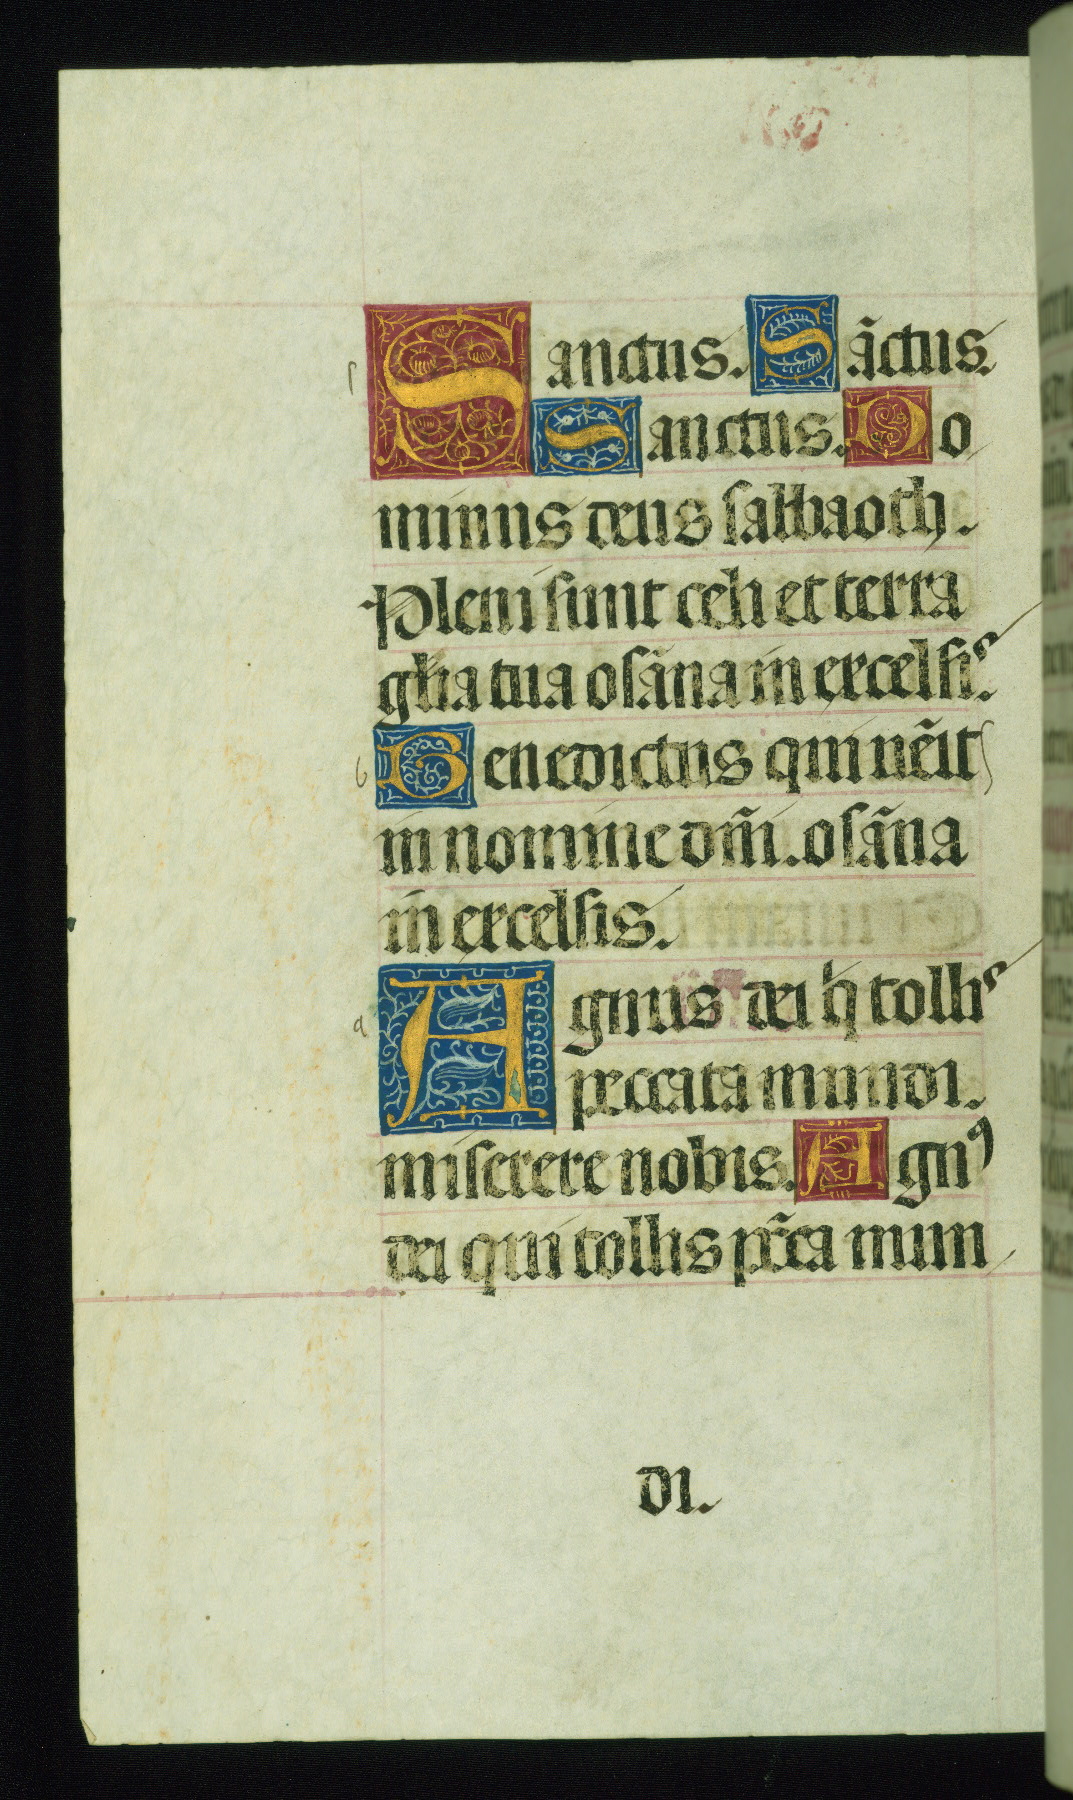 Sanctus. Sãctus.
Sanctus. Do
minus deus sabbaoth.
Pleni sunt celi et terra
gl̃ia tua osãna in excelsis.
Benedictus qui uẽit
in nomine dñi. osãna
in excelsis.
Agnus dei q̃ tollis
peccata mundi.
miserere nobis. Agnꝰ
dei qui tollis pc̃ca mun
di.